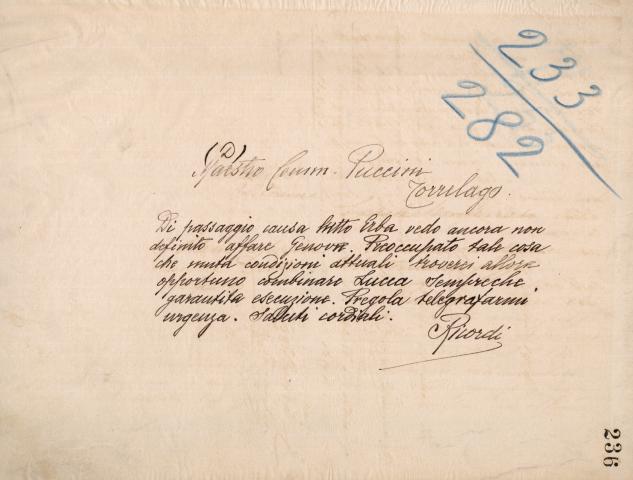 233
282
(D)
Maestro Comm. Puccini
Torrelago.
Di passaggio causa lutto Erba vedo ancora non
definito affare Genova. Preoccupato tale cosa
che muta condizioni attuali troverei allora
opportuno combinare Lucca sempreche
garantita esecuzione. Pregola telegrafarmi
urgenza. Saluti cordiali.
Ricordi
236